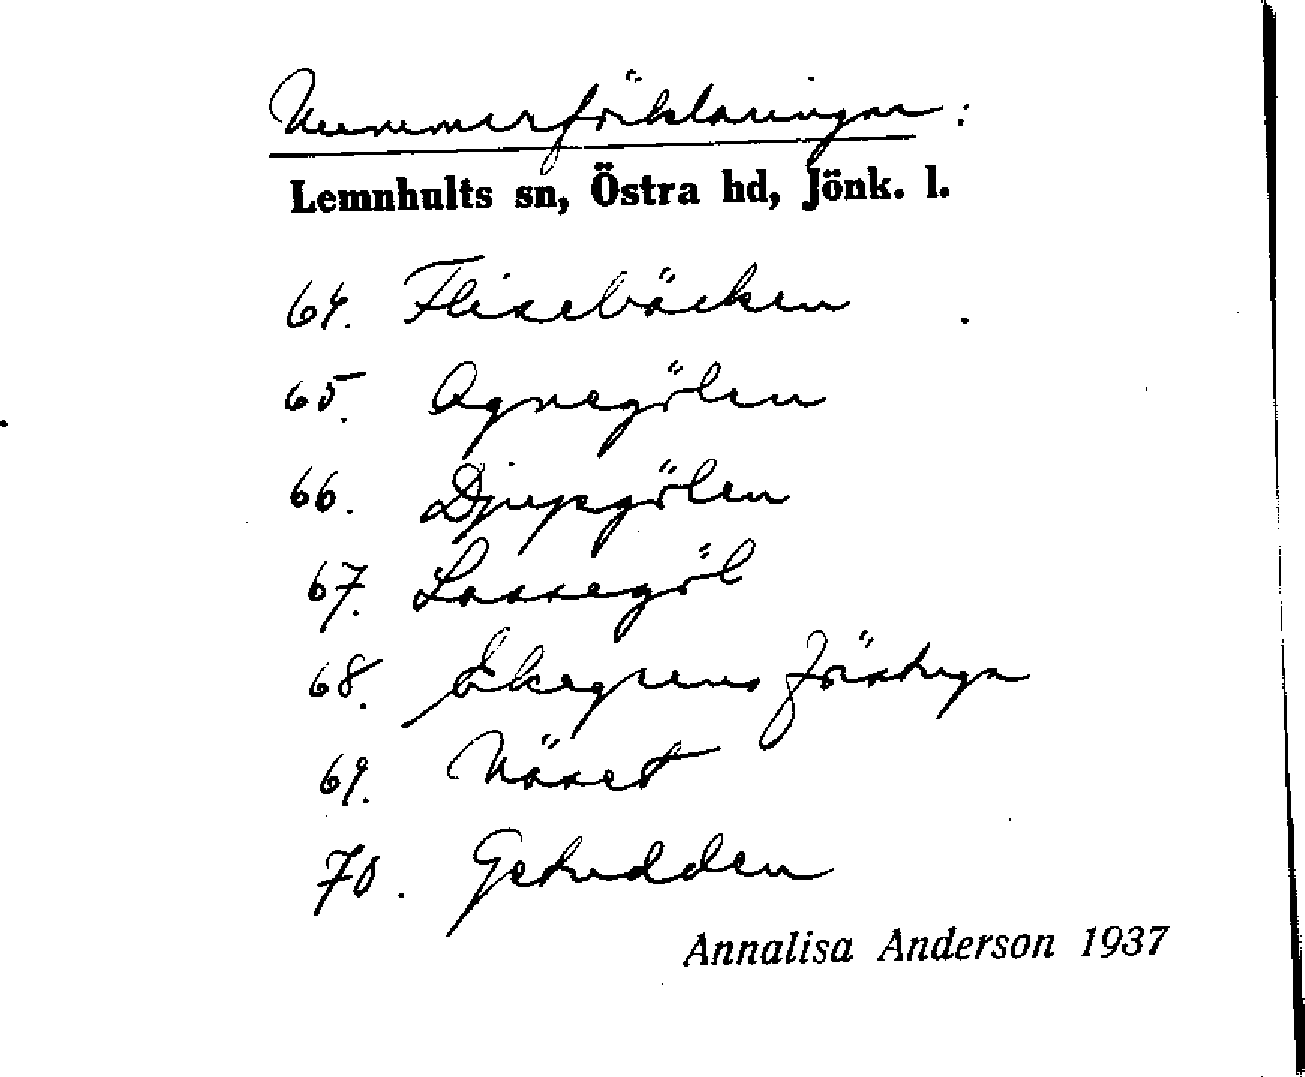 Nummerförklaringar:
Lemnhults sn, Östra hd, Jönk. l.
64. Flisebäcken
65. Agnegölen
66. Djupgölen
67. Lassegöl
68. Ekegrens
69. Näset
70. Getudden
Annalisa Anderson 1937